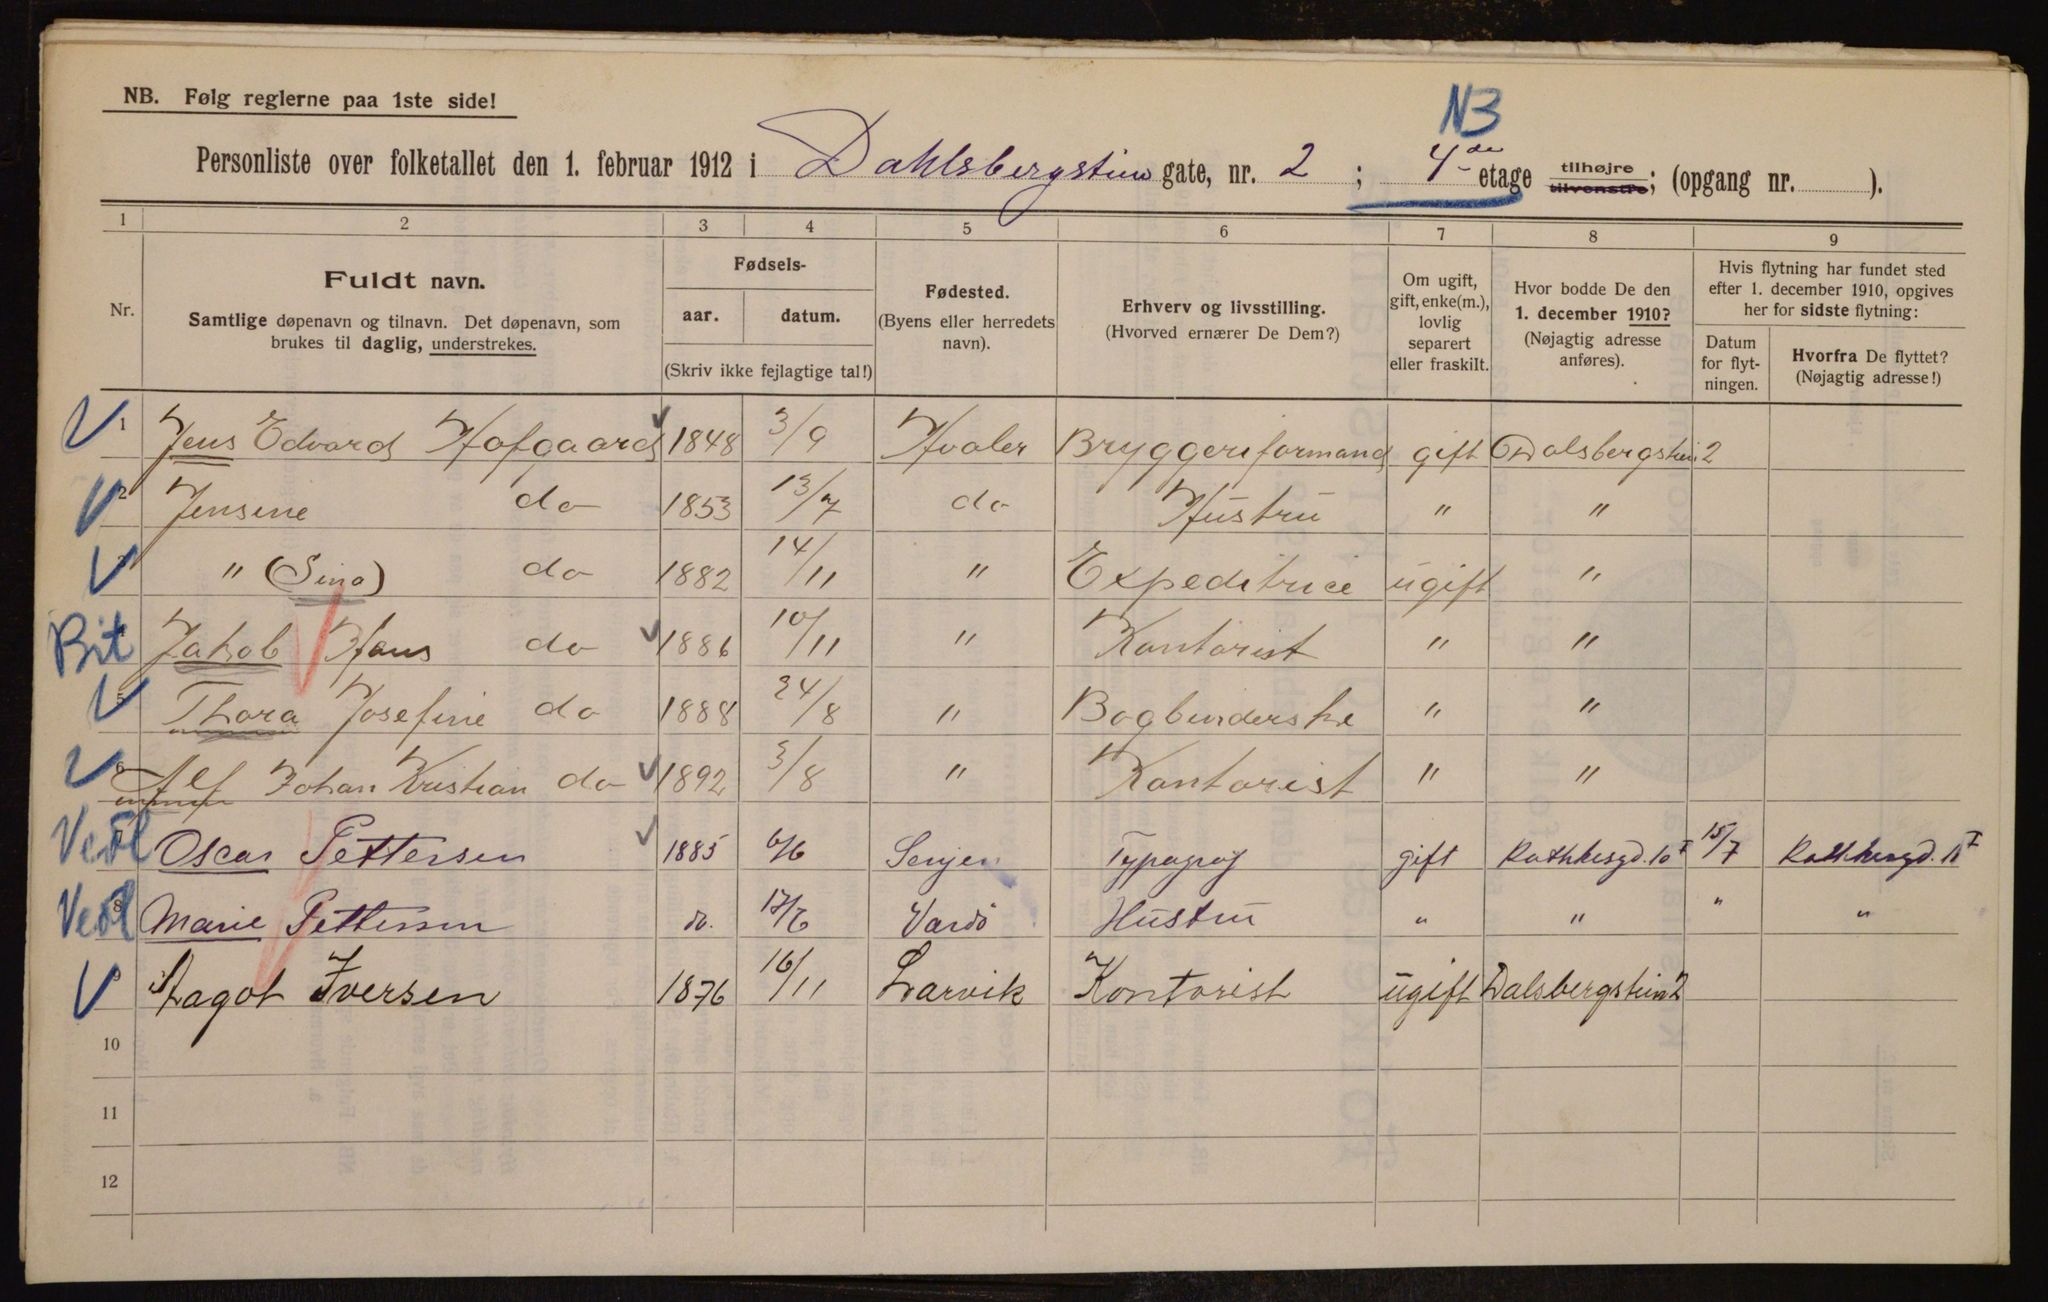 N3
NB. Følg reglerne paa 1ste side!
Personliste over folketallet den 1. februar 1912 i Dahlsbergstien gate, nr. 2 ; 4de etage tilhøjre tilvenstre; (opgang nr. ).
1 2 3 4 5 6 7 8 9
Nr.
Fuldt navn.
Samtlige døpenavn og tilnavn. Det døpenavn, som
brukes til daglig, understrekes.
Fødsels-
aar. datum.
(Skriv ikke fejlagtige tal!)
Fødested.
(Byens eller herredets
navn).
Erhverv og livsstilling.
(Hvorved ernærer De Dem?)
Om ugift,
gift, enke(m.),
lovlig
separert
eller fraskilt.
Hvor bodde De den
1. december 1910?
(Nøjagtig adresse
anføres).
Hvis flytning har fundet sted
efter 1. december 1910, opgives
her for sidste flytning:
Datum
for flyt-
ningen.
Hvorfra De flyttet?
(Nøjagtig adresse!)
1 Jens Edvard Hofgaard 1848 3/9 Hvaler Bryggeriformand gift Dalsbergstien 2
2 Jensine do 1853 13/7 do Hustru " "
" (Sina) do 1882 14/11 " Expeditrice ugift "
Bit Jakob Hans do 1886 10/11 " Kontorist " "
5 Thora Josefine do 1888 24/8 " Bogbinderske " "
6 Alf Johan Kristian do 1892 3/8 " Kontorist " "
Oscar Pettersen 1885 6/6 Senjen Typograf gift Rathkesgd. 10 I 15/7 Rathkesgd. I
8 Marie Pettersen do. Vardö Hustru " " " "
9 Dagot Iversen 1876 16/11 Larvik Kontorist ugift Dalsbergstien 2
10
11
12